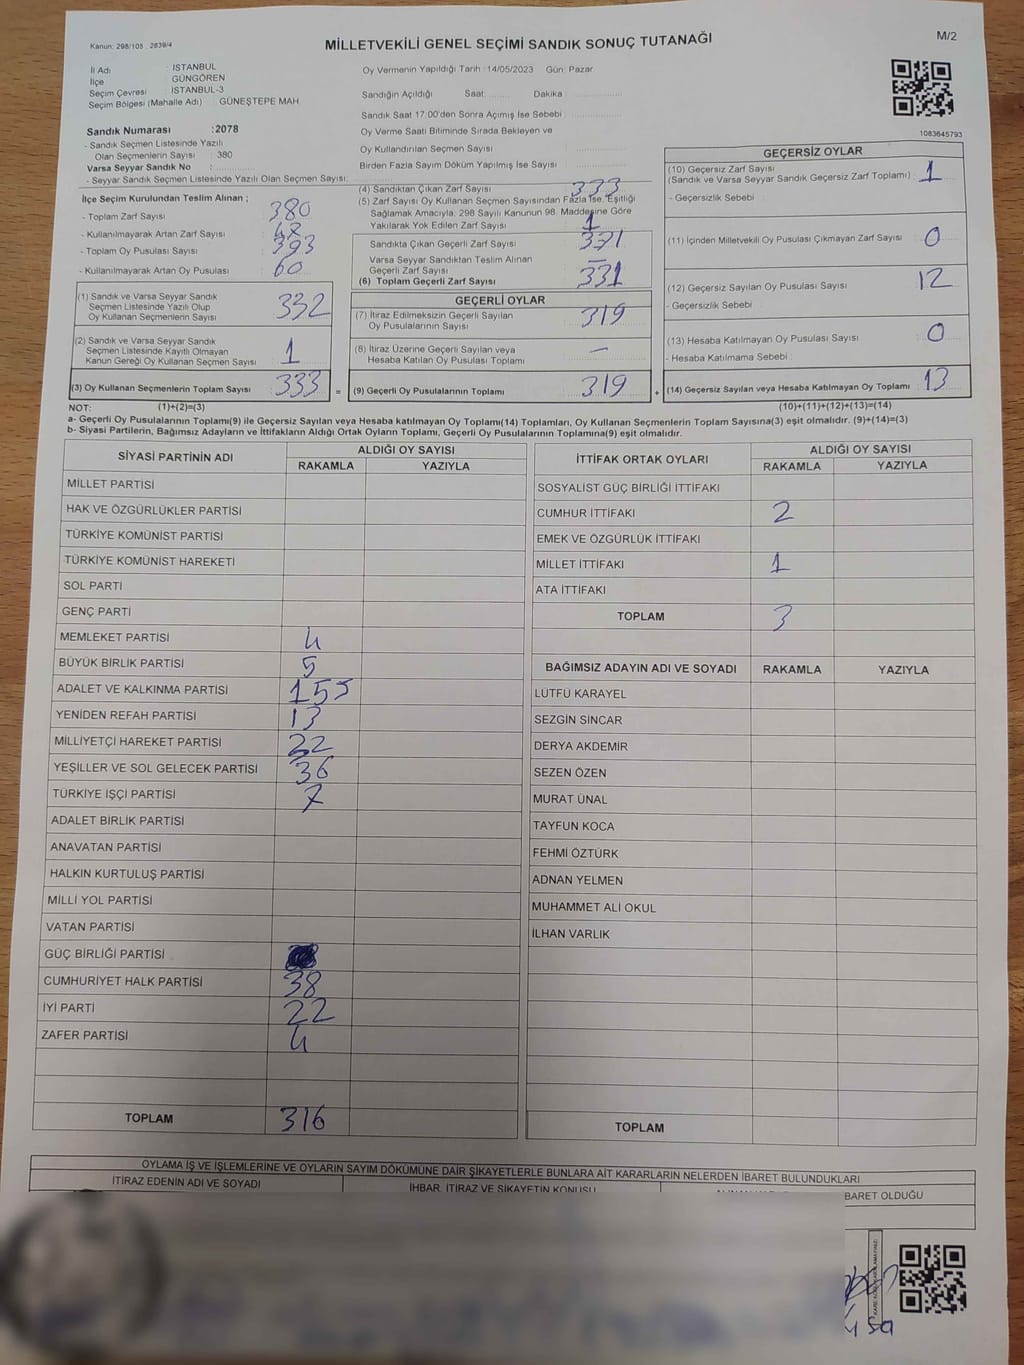 Kanun: 298/105 . 2839/4
MİLLETVEKİLİ GENEL SEÇİMİ SANDIK SONUÇ TUTANAĞI
M/2
İl Adı : İSTANBUL
İlçe GÜNGÖREN
Seçim Çevresi : İSTANBUL-3
Seçim Bölgesi (Mahalle Adı) GÜNEŞTEPE MAH
Sandık Numarası :2078
- Sandık Seçmen Listesinde Yazılı
Olan Seçmenlerin Sayısı : 380
Varsa Seyyar Sandık No :
- Seyyar Sandık Seçmen Listesinde Yazılı Olan Seçmen Sayısı:
Oy Vermenin Yapıldığı Tarih : 14/05/2023 Gün: Pazar
Sandığın Açıldığı Saat: Dakika
Sandık Saat 17:00'den Sonra Açımış İse Sebebi :
Oy Verme Saati Bitiminde Sırada Bekleyen ve
Oy Kullandırılan Seçmen Sayısı :
Birden Fazla Sayım Döküm Yapılmış İse Sayısı
1083645793
İlçe Seçim Kurulundan Teslim Alınan ;
- Toplam Zarf Sayısı : 380
- Kullanılmayarak Artan Zarf Sayısı :
- Toplam Oy Pusulası Sayısı : 393
- Kullanılmayarak Artan Oy Pusulası : 60
(1) Sandık ve Varsa Seyyar Sandık
Seçmen Listesinde Yazılı Olup
Oy Kullanan Seçmenlerin Sayısı : 332
(2) Sandık ve Varsa Seyyar Sandık
Seçmen Listesinde Kayıtlı Olmayan
Kanun Gereği Oy Kullanan Seçmen Sayısı : 1
(3) Oy Kullanan Seçmenlerin Toplam Sayısı : 333 =
(4) Sandıktan Çıkan Zarf Sayısı : 333
(5) Zarf Sayısı Oy Kullanan Seçmen Sayısından Fazla İse, Eşitliği
Sağlamak Amacıyla, 298 Sayılı Kanunun 98. Maddesine Göre
Yakılarak Yok Edilen Zarf Sayısı : 1
Sandıkta Çıkan Geçerli Zarf Sayısı : 331
Varsa Seyyar Sandıktan Teslim Alınan
Geçerli Zarf Sayısı : –
(6) Toplam Geçerli Zarf Sayısı : 331
GEÇERLİ OYLAR
(7) İtiraz Edilmeksizin Geçerli Sayılan
Oy Pusulalarının Sayısı : 319
(8) İtiraz Üzerine Geçerli Sayılan veya
Hesaba Katılan Oy Pusulası Toplamı : –
(9) Geçerli Oy Pusulalarının Toplamı : 319 +
GEÇERSİZ OYLAR
(10) Geçersiz Zarf Sayısı
(Sandık ve Varsa Seyyar Sandık Geçersiz Zarf Toplamı) : 1
- Geçersizlik Sebebi :
(11) İçinden Milletvekili Oy Pusulası Çıkmayan Zarf Sayısı : 0
(12) Geçersiz Sayılan Oy Pusulası Sayısı : 12
- Geçersizlik Sebebi :
(13) Hesaba Katılmayan Oy Pusulası Sayısı : 0
- Hesaba Katılmama Sebebi :
(14) Geçersiz Sayılan veya Hesaba Katılmayan Oy Toplamı : 13
NOT: (1)+(2)=(3) (10)+(11)+(12)+(13)=(14)
a- Geçerli Oy Pusulalarının Toplamı(9) ile Geçersiz Sayılan veya Hesaba katılmayan Oy Toplamı(14) Toplamları, Oy Kullanan Seçmenlerin Toplam Sayısına(3) eşit olmalıdır. (9)+(14)=(3)
b- Siyasi Partilerin, Bağımsız Adayların ve İttifakların Aldığı Ortak Oyların Toplamı, Geçerli Oy Pusulalarının Toplamına(9) eşit olmalıdır.
SİYASİ PARTİNİN ADI ALDIĞI OY SAYISI
RAKAMLA YAZIYLA
MİLLET PARTİSİ
HAK VE ÖZGÜRLÜKLER PARTİSİ
TÜRKİYE KOMÜNİST PARTİSİ
TÜRKİYE KOMÜNİST HAREKETİ
SOL PARTİ
GENÇ PARTİ
MEMLEKET PARTİSİ 4
BÜYÜK BİRLİK PARTİSİ 5
ADALET VE KALKINMA PARTİSİ 155
YENİDEN REFAH PARTİSİ 13
MİLLİYETÇİ HAREKET PARTİSİ 32
YEŞİLLER VE SOL GELECEK PARTİSİ 36
TÜRKİYE İŞÇİ PARTİSİ 7
ADALET BİRLİK PARTİSİ
ANAVATAN PARTİSİ
HALKIN KURTULUŞ PARTİSİ
MİLLİ YOL PARTİSİ
VATAN PARTİSİ
GÜÇ BİRLİĞİ PARTİSİ
CUMHURİYET HALK PARTİSİ 38
İYİ PARTİ 22
ZAFER PARTİSİ 4
TOPLAM 316
İTTİFAK ORTAK OYLARI ALDIĞI OY SAYISI
RAKAMLA YAZIYLA
SOSYALİST GÜÇ BİRLİĞİ İTTİFAKI
CUMHUR İTTİFAKI 2
EMEK VE ÖZGÜRLÜK İTTİFAKI
MİLLET İTTİFAKI 1
ATA İTTİFAKI
TOPLAM 3
BAĞIMSIZ ADAYIN ADI VE SOYADI RAKAMLA YAZIYLA
LÜTFÜ KARAYEL
SEZGİN SİNCAR
DERYA AKDEMİR
SEZEN ÖZEN
MURAT ÜNAL
TAYFUN KOCA
FEHMİ ÖZTÜRK
ADNAN YELMEN
MUHAMMET ALİ OKUL
İLHAN VARLIK
TOPLAM
OYLAMA İŞ VE İŞLEMLERİNE VE OYLARIN SAYIM DÖKÜMÜNE DAİR ŞİKAYETLERLE BUNLARA AİT KARARLARIN NELERDEN İBARET BULUNDUKLARI
İTİRAZ EDENİN ADI VE SOYADI
İHBAR, İTİRAZ VE ŞİKAYETİN KONUSU
İBARET OLDUĞU